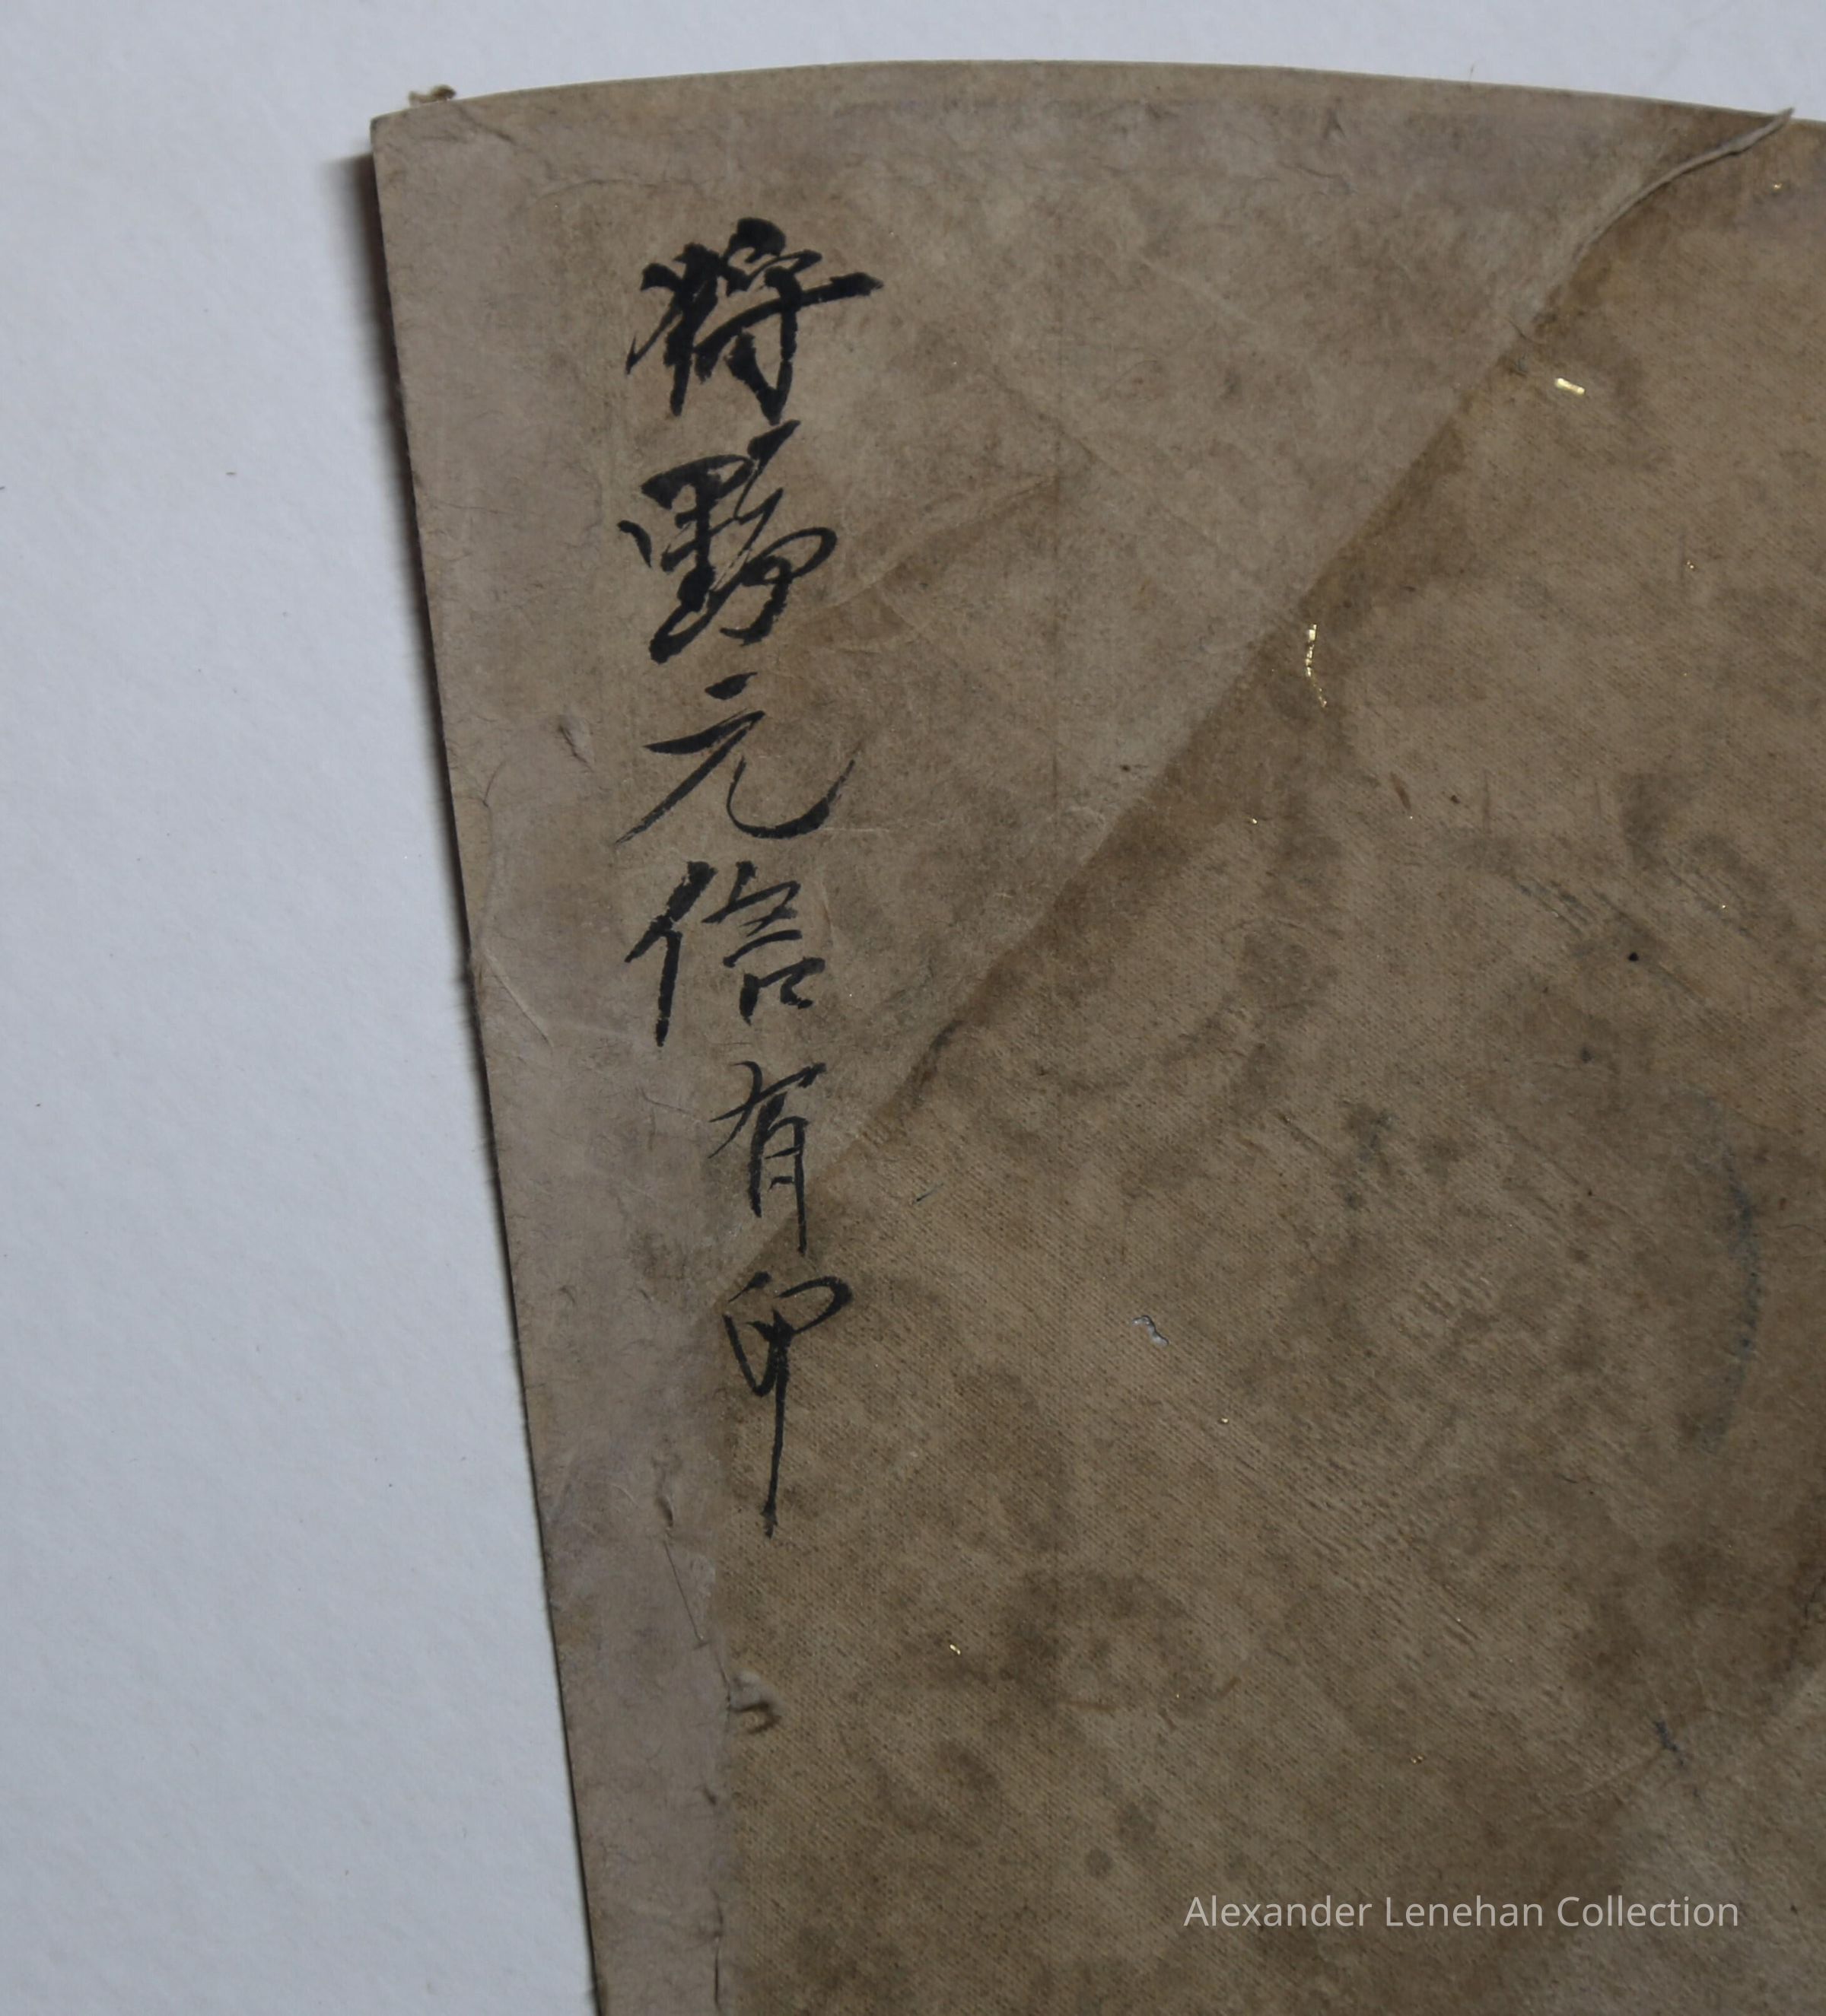 狩野元信有印
Alexander Lenehan Collection